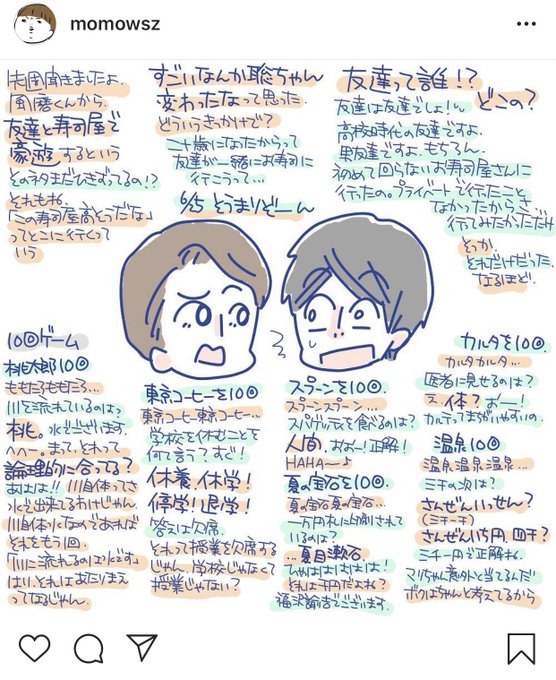 momowsz
先週聞きましたよ。
風磨くんから。
友達と寿司屋で
豪遊するという
そのネタまだひきずってるの!?
それもね、
「この寿司屋高そうだな」
ってとこに行くって
いう
すごいなんか聡ちゃん
変わったなって思った。
どういうきっかけで?
二十歳になったからって
友達が一緒にお寿司に
行こうって…
6/25 とうまりぞーん
友達って誰!?
どこの?
友達は友達でしょ!
高校時代の友達ですよ。
男友達ですよ、もちろん。
初めて回らないお寿司屋さんに
行ったの。プライベートで行ったこと
なかったからさ…
行ってみたかっただけ
そっか。
それだけだった。
なるほど。
10回ゲーム
桃太郎10回
ももたろももたろ…
川を流れているのはっ
桃。水でございます。
へへへー。まって、それって
論理的に合ってる?
あはは!!川自体ってさ
水で出来てるわけじゃん。
川自体水なのであれば
それをもう1回、
「川に流れるのは水です」
はい、それはあたりまえ
ってなるじゃん。
東京コーヒーを10回
東京コーヒー東京コーヒー…
学校を休むことを
何て言う?すご!
休養、休学!
停学!退学!
答えは欠席。
それって授業を欠席する
じゃん、学校じゃなくて
授業じゃない?
スプーンを10回。
スプーンスプーン…
スパゲッティを食べるのは?
人間。おおー!正解!
HAHA〜♪
夏の宝石を10回。
夏の宝石夏の宝石…
一万円札に印刷されて
いるのは?
…夏目漱石
しゃはははははは!
それは千円だよね?
福沢諭吉でございます。
カルタを10回。
カルタカルタ…
医者に見せるのは?
え、体?おー!
カルテってまちがいやすいの。
温泉10回
温泉、温泉、温泉…
三千の次は?
さんぜんいっせん?
(三千一千)
さんぜんいち円、四千?
三千一円で正解ね。
マリちゃん意外と当てるんだ
ボクはちゃんと考えてるから